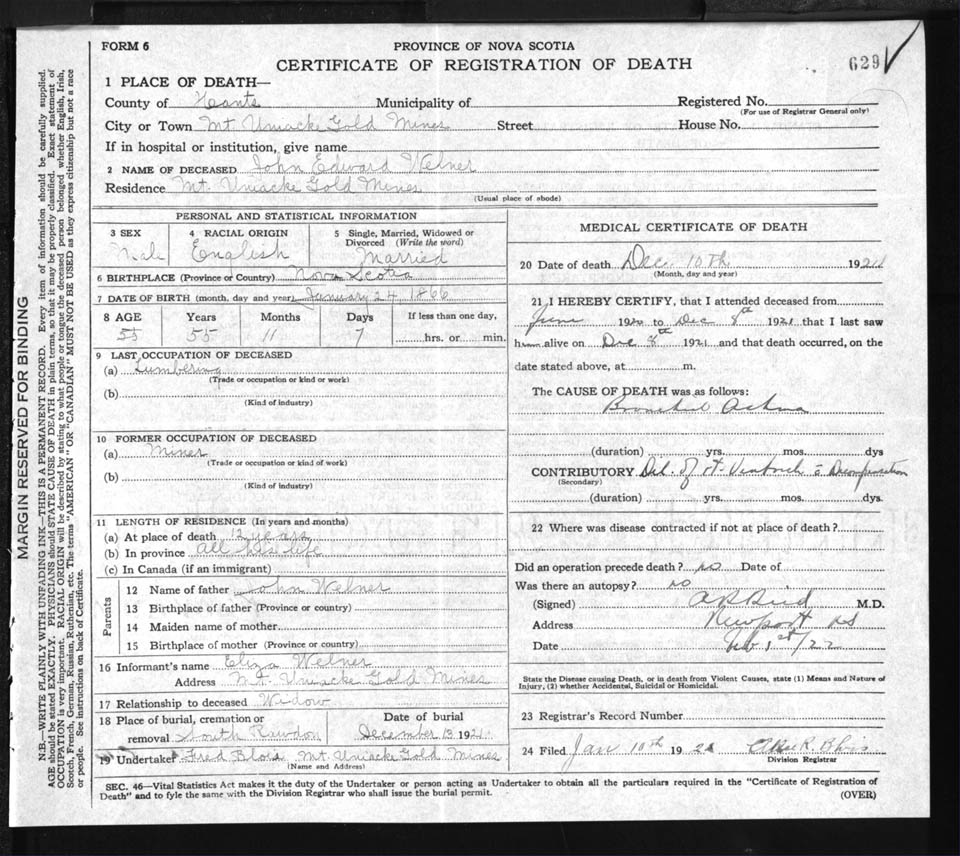 FORM 6
PROVINCE OF NOVA SCOTIA
CERTIFICATE OF REGISTRATION OF DEATH
629
MARGIN RESERVED FOR BINDING
N.B.—WRITE PLAINLY WITH UNFADING INK—THIS IS A PERMANENT RECORD. Every item of information should be carefully supplied.
AGE should be stated EXACTLY. PHYSICIANS should STATE CAUSE OF DEATH in plain terms, so that it may be properly classified. Exact statement of
OCCUPATION is very important. RACIAL ORIGIN will be described by stating to what people or tongue the deceased person belonged whether English, Irish,
Scotch, French, German, Russian, Ruthenian, etc. The terms "AMERICAN" OR "CANADIAN" MUST NOT BE USED as they express citizenship but not a race
or people. See instructions on back of Certificate.
1 PLACE OF DEATH—
County of Hants Municipality of Registered No.
(For use of Registrar General only)
City or Town Mt. Uniacke Gold Mines Street House No.
If in hospital or institution, give name
2 NAME OF DECEASED John Edward Welner
Residence Mt. Uniacke Gold Mines
(Usual place of abode)
PERSONAL AND STATISTICAL INFORMATION
3 SEX 4 RACIAL ORIGIN 5 Single, Married, Widowed or Divorced (Write the word)
Male English Married
6 BIRTHPLACE (Province or Country) Nova Scotia
7 DATE OF BIRTH (month, day and year) January 24 1866
8 AGE Years Months Days If less than one day,
55 55 11 7 hrs. or min.
9 LAST OCCUPATION OF DECEASED
(a) Lumbering
(Trade or occupation or kind or work)
(b)
(Kind of industry)
10 FORMER OCCUPATION OF DECEASED
(a) Miner
(Trade or occupation or kind of work)
(b)
(Kind of industry)
11 LENGTH OF RESIDENCE (In years and months)
(a) At place of death 12 years
(b) In province all his life
(c) In Canada (if an immigrant)
Parents
12 Name of father John Welner
13 Birthplace of father (Province or country)
14 Maiden name of mother
15 Birthplace of mother (Province or country)
16 Informant's name Eliza Welner
Address Mt. Uniacke Gold Mines
17 Relationship to deceased Widow
18 Place of burial, cremation or Date of burial
removal South Rawdon December 13 1921
19 Undertaker Fred Blois Mt. Uniacke Gold Mines
(Name and Address)
MEDICAL CERTIFICATE OF DEATH
20 Date of death Dec 10th 1921
(Month, day and year)
21 I HEREBY CERTIFY, that I attended deceased from
June 1920 to Dec 8th 1921 that I last saw
him alive on Dec 8th 1921 and that death occurred, on the
date stated above, at m.
The CAUSE OF DEATH was as follows:
Bronchial Astma
(duration) yrs. mos. dys
CONTRIBUTORY Dil. of rt. Ventricle c Decompensation
(Secondary)
(duration) yrs. mos. dys.
22 Where was disease contracted if not at place of death?
Did an operation precede death? no Date of
Was there an autopsy? no
(Signed) M.D.
Address Newport NS
Date Feb 1st/22
State the Disease causing Death, or in death from Violent Causes, state (1) Means and Nature of
Injury, (2) whether Accidental, Suicidal or Homicidal.
23 Registrar's Record Number
24 Filed Jan 10th 192 Blois
Division Registrar
SEC. 46—Vital Statistics Act makes it the duty of the Undertaker or person acting as Undertaker to obtain all the particulars required in the "Certificate of Registration of
Death" and to fyle the same with the Division Registrar who shall issue the burial permit. (OVER)